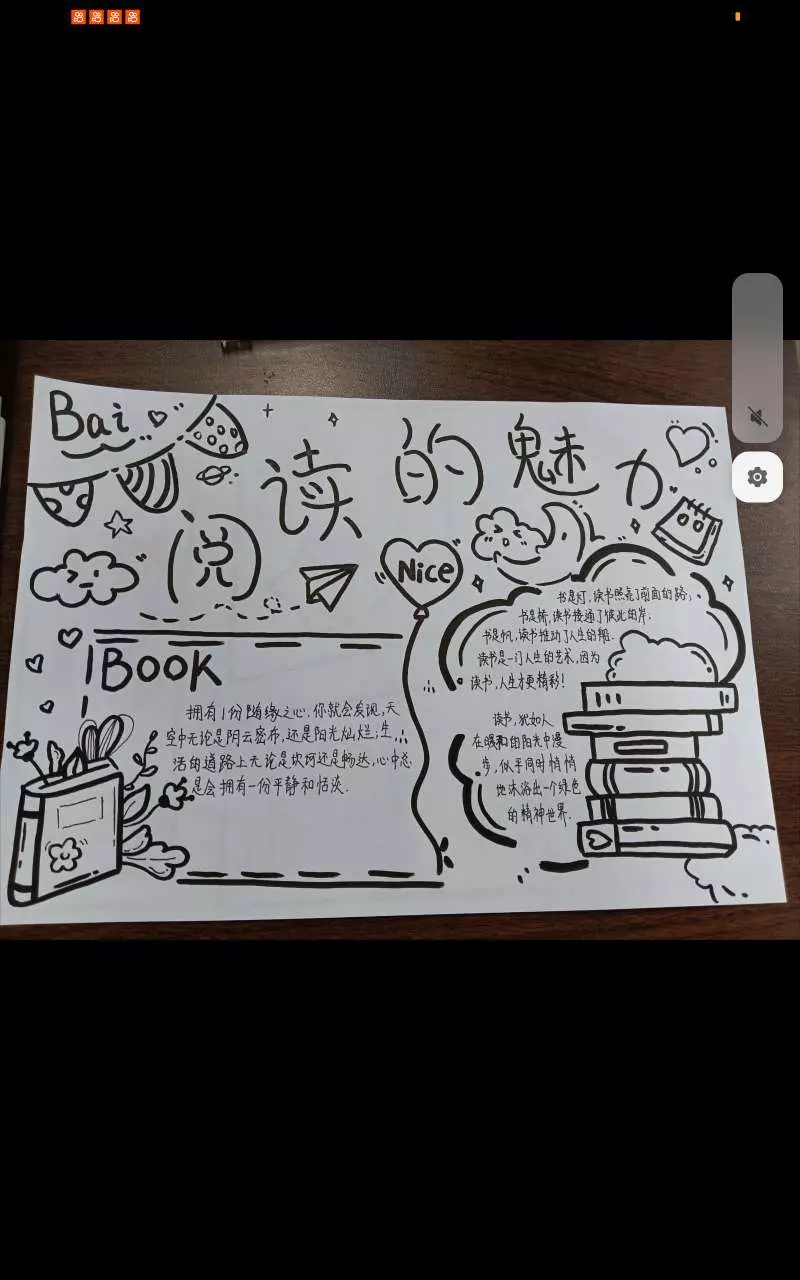 Bai
阅读的魅力
Nice
BOOK
拥有1份随缘之心,你就会发现,天
空中无论是阴云密布,还是阳光灿烂;生
活的道路上无论是坎坷还是畅达,心中总
是会拥有一份平静和恬淡.
书是灯,读书照亮了前面的路;
书是桥,读书接通了彼此的岸.
书是帆,读书推动了人生的船.
读书是一门人生的艺术,因为
读书,人生才更精彩!
读书,犹如人
在暖和的阳光中漫
步,似乎同时悄悄
地沐浴出一个绿色
的精神世界.